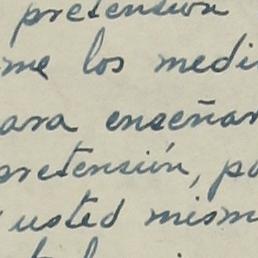 pretensión
me los medi
ara enseñar
pretensión, po
usted mism